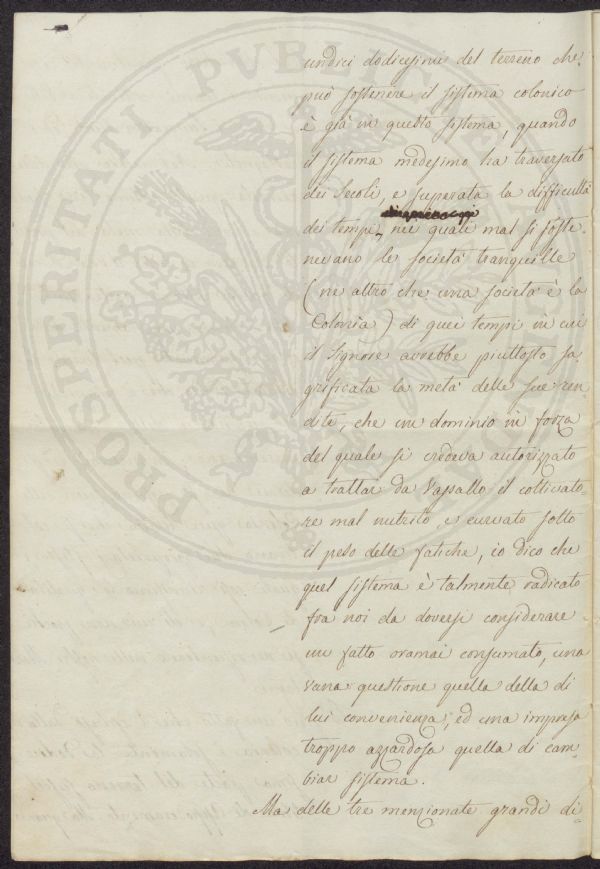 PROSPERITATI PUBLICAE
undici dodicesimi del terreno che
può sostenere il sistema colonico
è già in questo sistema, quando
il sistema medesimo ha traversato
dei Secoli, e superata la difficultà
dei tempi, nei quali mal si soste-
nevano le società tranquille
(ne altro che una società è la
Colonìa) di quei tempi in cui
il Signore avrebbe piuttosto sa-
grificata la metà delle sue ren-
dite, che un dominio in forza
del quale si credeva autorizzato
a trattar da Vassallo il coltivato-
re mal nutrito, e curvato sotto
il peso delle fatiche, io dico che
quel sistema è talmente radicato
fra noi da doversi considerare
un fatto oramai consumato, una
vana questione quella della di
lui convenienza, ed una impresa
troppo azzardosa quella di cam-
biar sistema.
Ma delle tre menzionate grandi di-